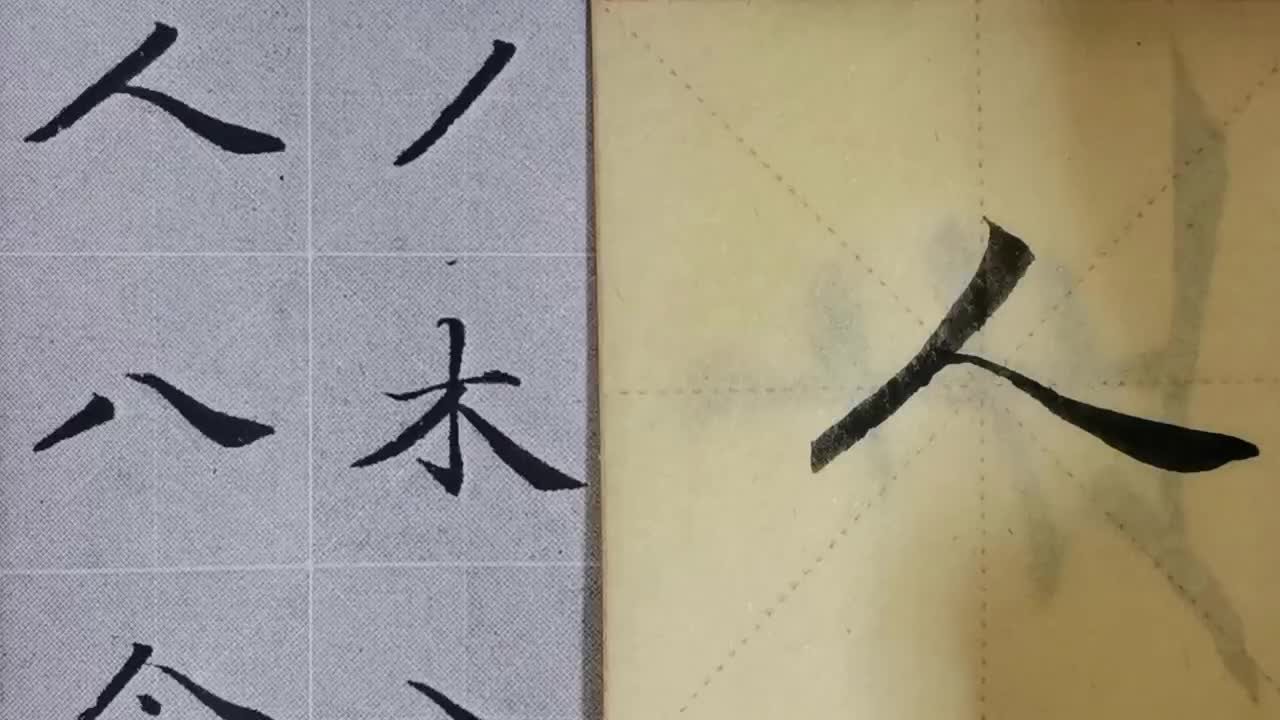 人 丿
八 木
人